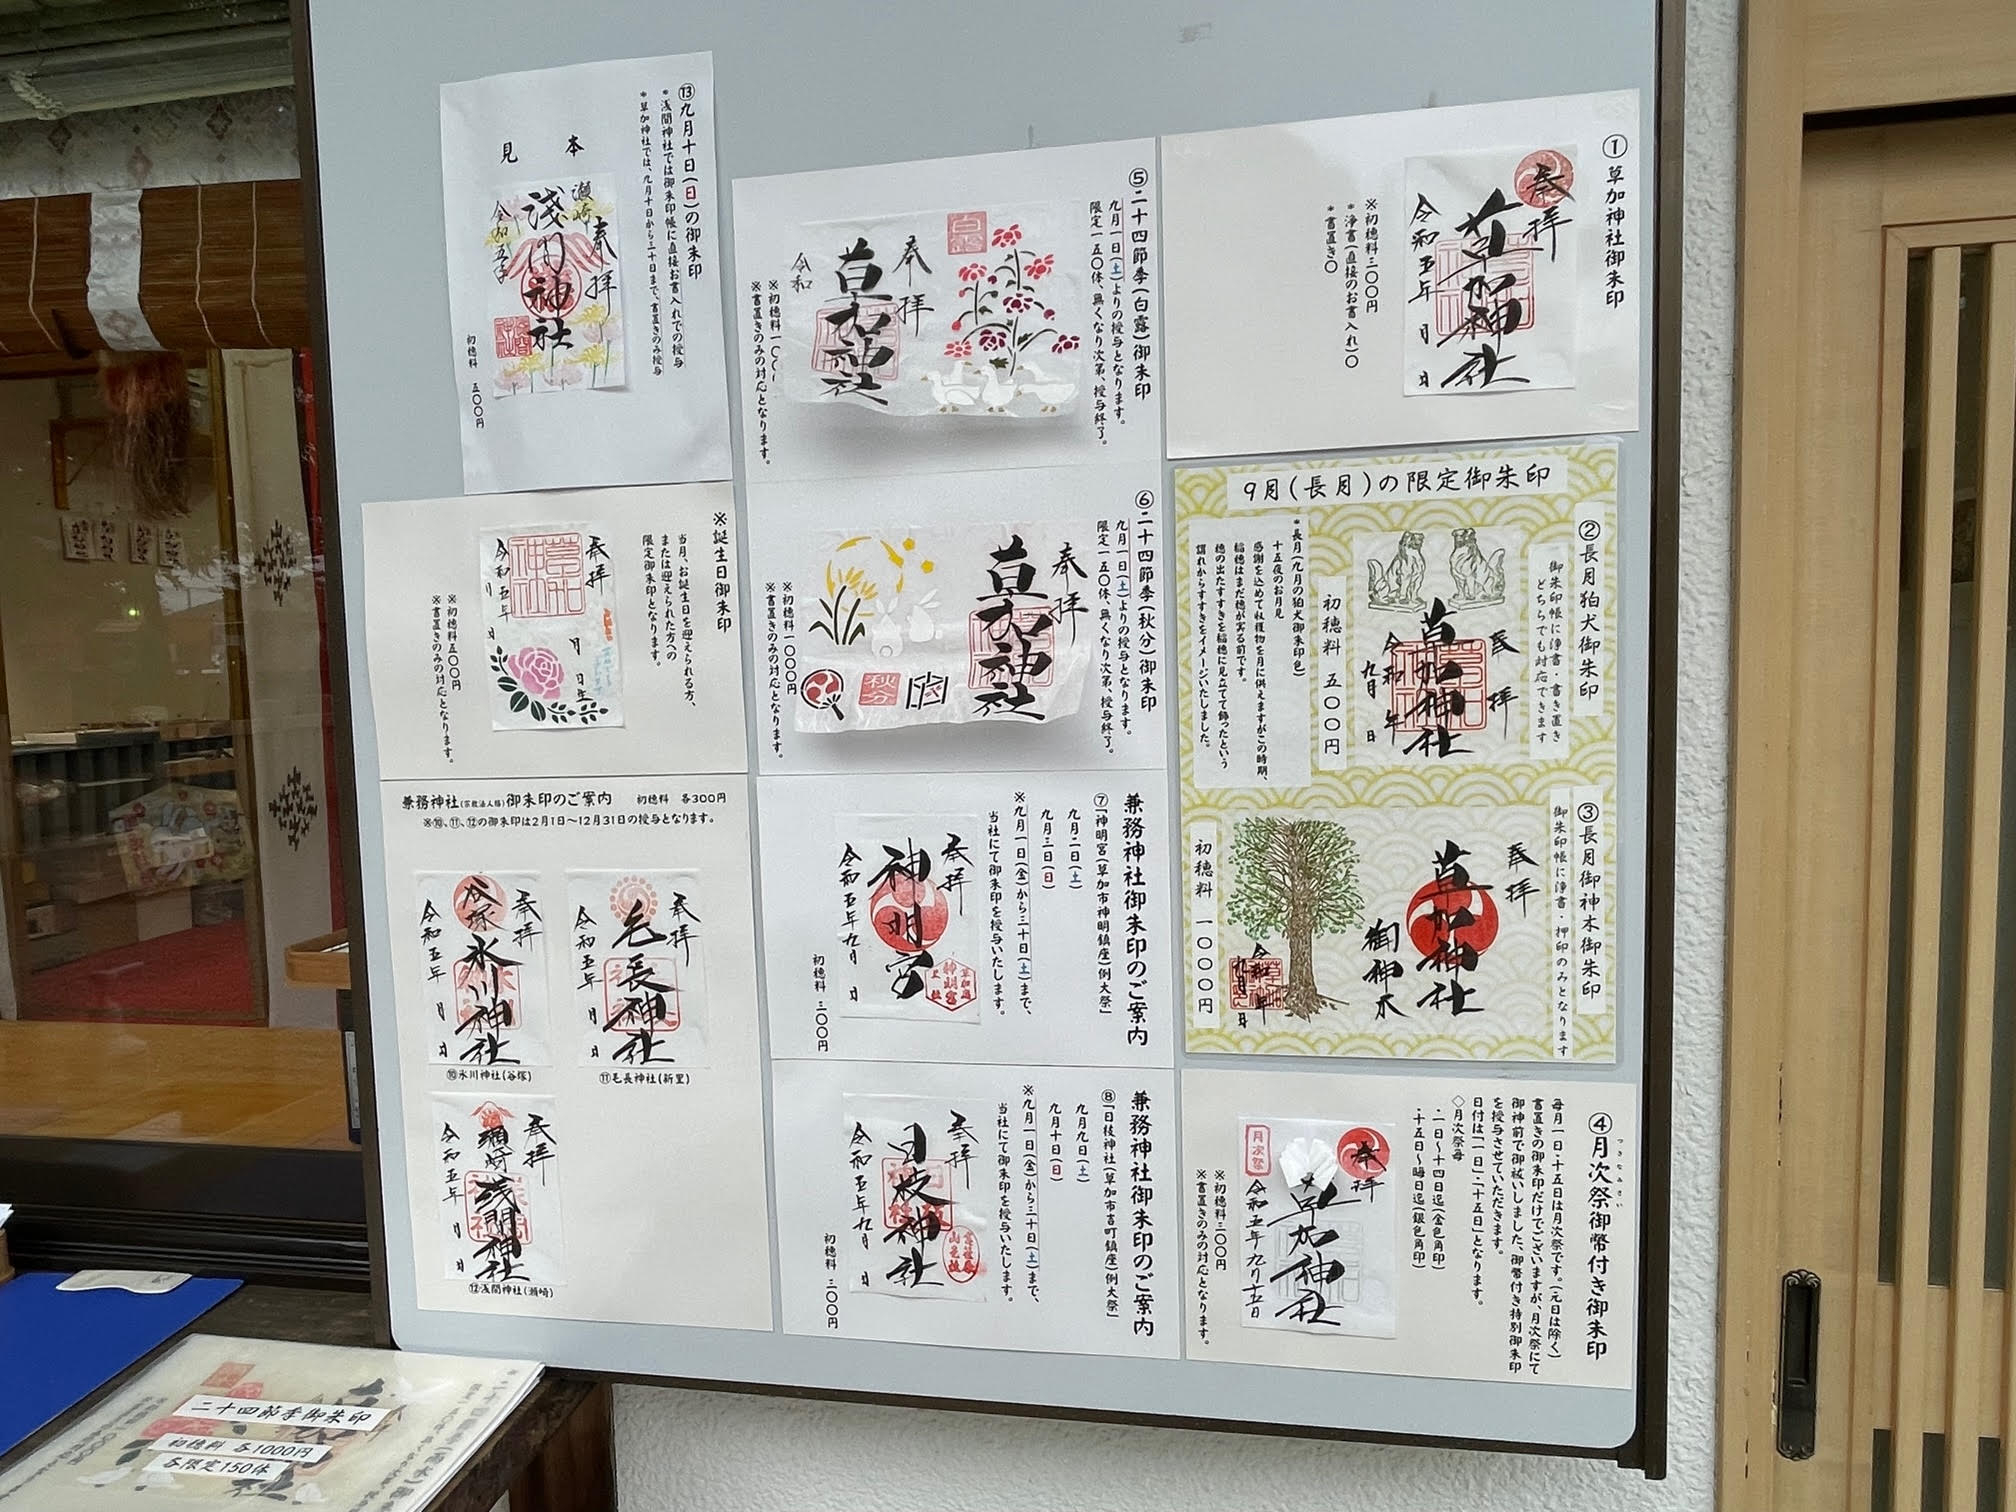 ①草加神社御朱印
奉拝
草加神社
令和五年 月 日
※初穂料三〇〇円
*浄書(直接のお書入れ)〇
*書置き〇
9月(長月)の限定御朱印
②長月狛犬御朱印
御朱印帳に浄書・書き置き
どちらでも対応できます
奉拝
草加神社
令和 年
九月 日
初穂料 五〇〇円
*長月(九月の狛犬御朱印色)
十五夜のお月見
感謝を込めて収穫物を月に供えますがこの時期、
稲穂はまだ穂が実る前です。
穂の出たすすきを稲穂に見立てて飾ったという
謂れからすすきをイメージいたしました。
③長月御神木御朱印
御朱印帳に浄書・押印のみとなります
奉拝
草加神社
御神木
令和 年
九月 日
初穂料 一〇〇〇円
④月次祭御幣付き御朱印
つきなみさい
毎月一日・十五日は月次祭です。(元日は除く)
書置きの御朱印だけでございますが、月次祭にて
御神前で御祓いしました、御幣付き特別御朱印
を授与させていただきます。
日付は「一日」・「十五日」となります。
◇月次祭毎
・一日～十四日迄(金色角印)
・十五日～晦日迄(銀色角印)
奉拝
草加神社
月次祭
令和五年九月十五日
※初穂料三〇〇円
※書置きのみの対応となります。
⑤二十四節季(白露)御朱印
九月一日(土)よりの授与となります。
限定一五〇体、無くなり次第、授与終了。
白露
奉拝
草加神社
令和
※書置きのみの対応となります。
⑥二十四節季(秋分)御朱印
九月一日(土)よりの授与となります。
限定一五〇体、無くなり次第、授与終了。
奉拝
草加神社
秋分
※初穂料一〇〇〇円
※書置きのみの対応となります。
兼務神社御朱印のご案内
⑦「神明宮(草加市神明鎮座)例大祭」
九月二日(土)
九月三日(日)
※九月一日(金)から三十日(土)まで、
当社にて御朱印を授与いたします。
奉拝
神明宮
令和五年九月 日
初穂料 三〇〇円
兼務神社御朱印のご案内
⑧「日枝神社(草加市吉町鎮座)例大祭」
九月九日(土)
九月十日(日)
※九月一日(金)から三十日(土)まで、
当社にて御朱印を授与いたします。
奉拝
日枝神社
令和五年九月 日
初穂料 三〇〇円
⑬九月十日(日)の御朱印
*浅間神社では御朱印帳に直接お書入れでの授与
*草加神社では、九月十日から三十日まで、書置きのみ授与
見本
奉拝
瀬崎
浅間神社
令和五年
初穂料 五〇〇円
※誕生日御朱印
当月、お誕生日を迎えられる方、
または迎えられた方への
限定御朱印となります。
奉拝
草加神社
月 日生
令和五年 月 日
※初穂料五〇〇円
※書置きのみの対応となります。
兼務神社(宗教法人格)御朱印のご案内 初穂料 各300円
※⑩、⑪、⑫の御朱印は2月1日～12月31日の授与となります。
奉拝
谷塚
氷川神社
令和五年 月 日
⑩氷川神社(谷塚)
奉拝
毛長神社
令和五年 月 日
⑪毛長神社(新里)
奉拝
瀬崎
浅間神社
令和五年 月 日
⑫浅間神社(瀬崎)
二十四節季御朱印
初穂料 各1000円
各限定150体